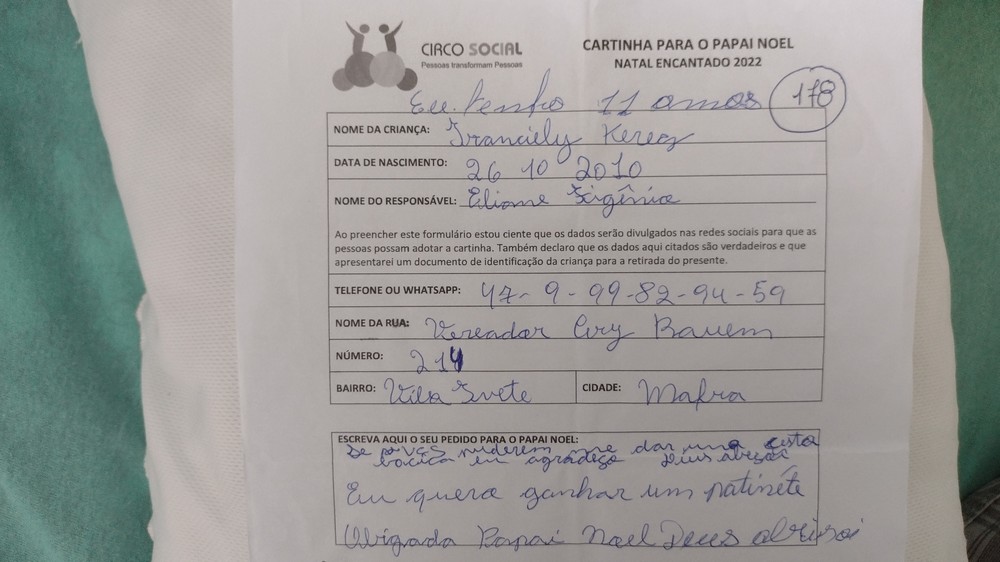 CIRCO SOCIAL
Pessoas transformam Pessoas
CARTINHA PARA O PAPAI NOEL
NATAL ENCANTADO 2022
Eu tenho 11 anos
178
NOME DA CRIANÇA: Franciely Kerey
DATA DE NASCIMENTO: 26 10 2010
NOME DO RESPONSÁVEL: Eliane Efigênia
Ao preencher este formulário estou ciente que os dados serão divulgados nas redes sociais para que as
pessoas possam adotar a cartinha. Também declaro que os dados aqui citados são verdadeiros e que
apresentarei um documento de identificação da criança para a retirada do presente.
TELEFONE OU WHATSAPP: 47-9-99-82-94-59
NOME DA RUA: Vereador Ary Bauem
NÚMERO: 214
BAIRRO: Vila Ivete CIDADE: Mafra
ESCREVA AQUI O SEU PEDIDO PARA O PAPAI NOEL:
Se me dar uma cesta
eu Deus
Eu quero ganhar um patinete
Obigada Papai Noel Deus